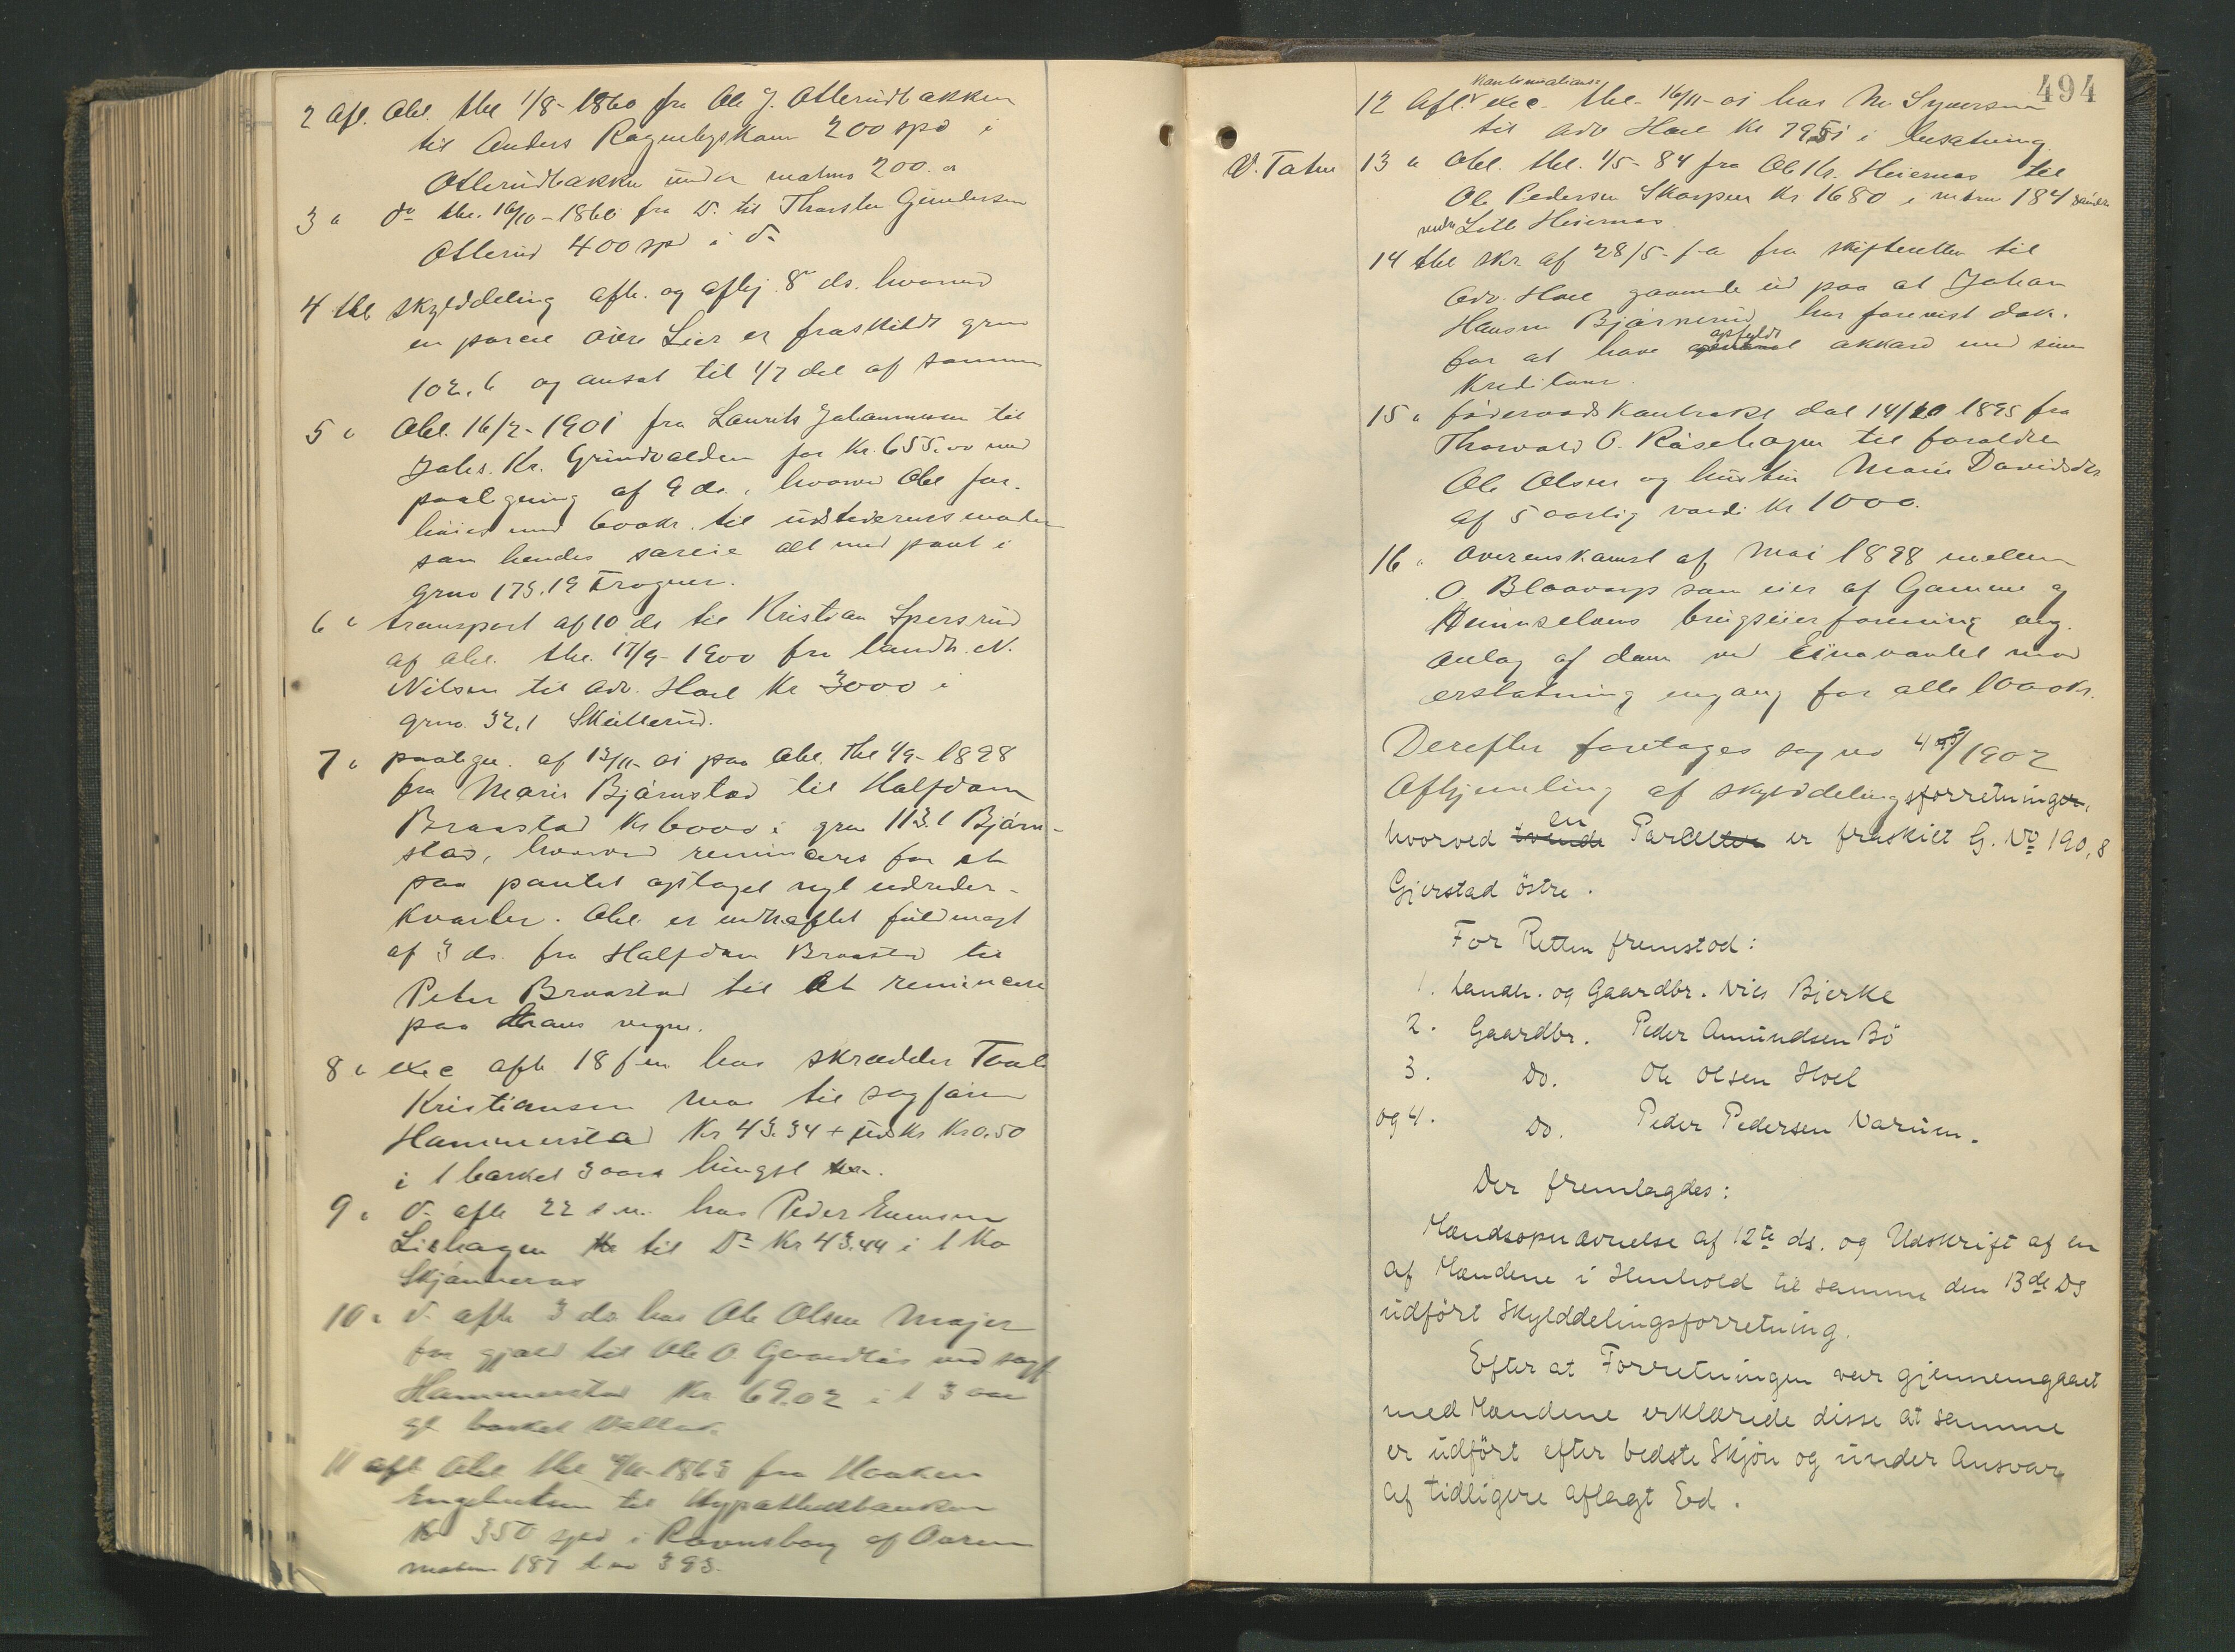 2 Afl. Obl. thl 1/8-1860 fra Ole J. Otterudbakken
til Anders Rognebyskam 200 spd i
Otterudbakken under matrno 200. a
3 " do thl. 16/10-1860 fra Do til Thorsten Gundersen
Otterud 400 spd i do
4 thl skylddeling afh. og afhj. 8 ds. hvorved
en parcel øvre Lier er fraskildt grno
102,6 og ansat til 1/7 del af samme
5 " Obl. 16/2-1901 fra Laurits Johannessen til
Johs. Kr. Grindvolden for Kr. 655.00 med
paategning af 9 ds. hvorved Obl for-
høies med 600 kr. til udstederens moder
som hendes særeie alt med pant i
grno 173.19 Frogner.
6 " transport af 10 ds til Kristian Spersrud
af obl. thl. 17/9-1900 fra landh. N.
Nilsen til adv. Hoel Kr 3000 i
grno. 32,1 Skutterud.
7 " paategn. af 13/11-01 paa Obl. thl 1/9-1898
fra Marie Bjørnstad til Halfdan
Braastad Kr 6000 i grno 113.1 Bjørn-
stad, hvorved reminceres for et
paa pantet optaget nyt
Obl. er vedhæftet fuldmagt
af 3 ds. fra Halfdan Braastad til
Peter Braastad til at remincere
paa hans vegne.
8 " exec afh 18 f m hos skrædder
Kristiansen Moe til sagfører
Hammerstad Kr 43.34 + Kr 0.50
i 1 borket 3 aars hingst
9 " do afh 22 s.m. hos Peder Evensen
Liehagen til Do Kr 43.44 i 1 ko
10 " do afh 3 ds hos Ole Olsen Majer
for gjæld til Ole O. ved sagf
Hammerstad Kr 69.02 i 1 3 aar
gl borket Vallak.
11 afl Obl thl fra Haaken
Engebretsen til Hypothekbanken
350 spd i Ravnsborg af
matrno 187 lno 393.
494
Kautionsations
12 Afl. exec. thl. 16/11-01 hos M. Syversen
til adv Hoel Kr 1951 i besætning.
V. Toten
13 " Obl. thl. 1/5-84 fra Ole Kr. Heiernæs til
Ole Pedersen Skarpen Kr 1680 i mtrno 184 søndre
nedre Lille Heiernæs
14 thl skr af 28/5-f.a fra skifteretten til
Adv. Hoel gaaende ud paa at Johan
Hansen Bjørnerud har forevist dok.
opfyldt
for at have akkord med sine
Kreditorer.
15 " føderaadskontrakt dat 14/10 1895 fra
Thorvald O. Raasehagen til forældre
Ole Olsen og hustru Marie Davidsdtr
af 5 aarlig værdi Kr 1000.
16 " Overenskomst af Mai 1898 mellem
O. Blaavarp som eier af Gamme og
Hunnselvens brugseierforening ang.
Anlæg af dam ved Einavandet mod
erstatning engang for alle 1000 kr.
Derefter foretages sag no 45/1902
Afhjemling af skylddelingsforretningen,
en
hvorved tvende Parceller er fraskilt G. No 190,8
Gjerstad östre.
For Retten fremstod:
1. Landh. og Gaardbr. Nils Bjerke
2. Gaardbr. Peder Amundsen Bö
3. Do. Ole Olsen Hoel
og 4. Do. Peder Pedersen Narum.
Der fremlagdes:
Mændsopnævnelse af 12te ds. og Udskrift af en
af Mændene i Henhold til samme den 13de Ds
udfört Skylddelingsforretning.
Efter at Forretningen var gjennemgaaet
med Mændene erklærede disse at samme
er udfört efter bedste Skjön og under Ansvar
af tidligere aflagt Ed.